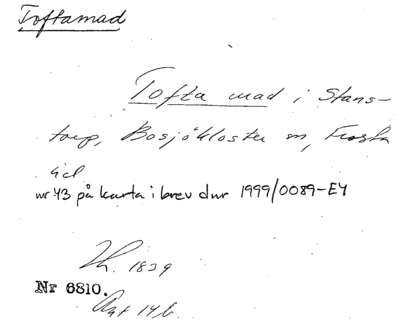 Toftamad
Tofta mad i Stans-
torp, Bosjökloster sn, Frosta
hd
nr 43 på karta i brev dnr 1999/0089-EY
Lh. 1839
Nr 6810.
Akt 14 b.